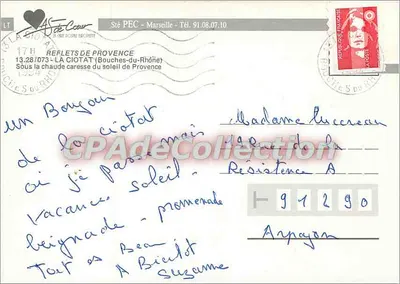 LT
AS de Cœur
Sté PEC - Marseille - Tél. 91.08.07.10
17 H
REFLETS DE PROVENCE
13.28/073 - LA CIOTAT (Bouches-du-Rhône)
Sous la chaude caresse du soleil de Provence
un Bonjour
de la ciotat
où je passe mais
vacances soleil -
beignade - promenade
Tout es Beau
A Bientot
Suzanne
Madame
de la
Résistence A
91290
Arpajon
CPAdeCollection